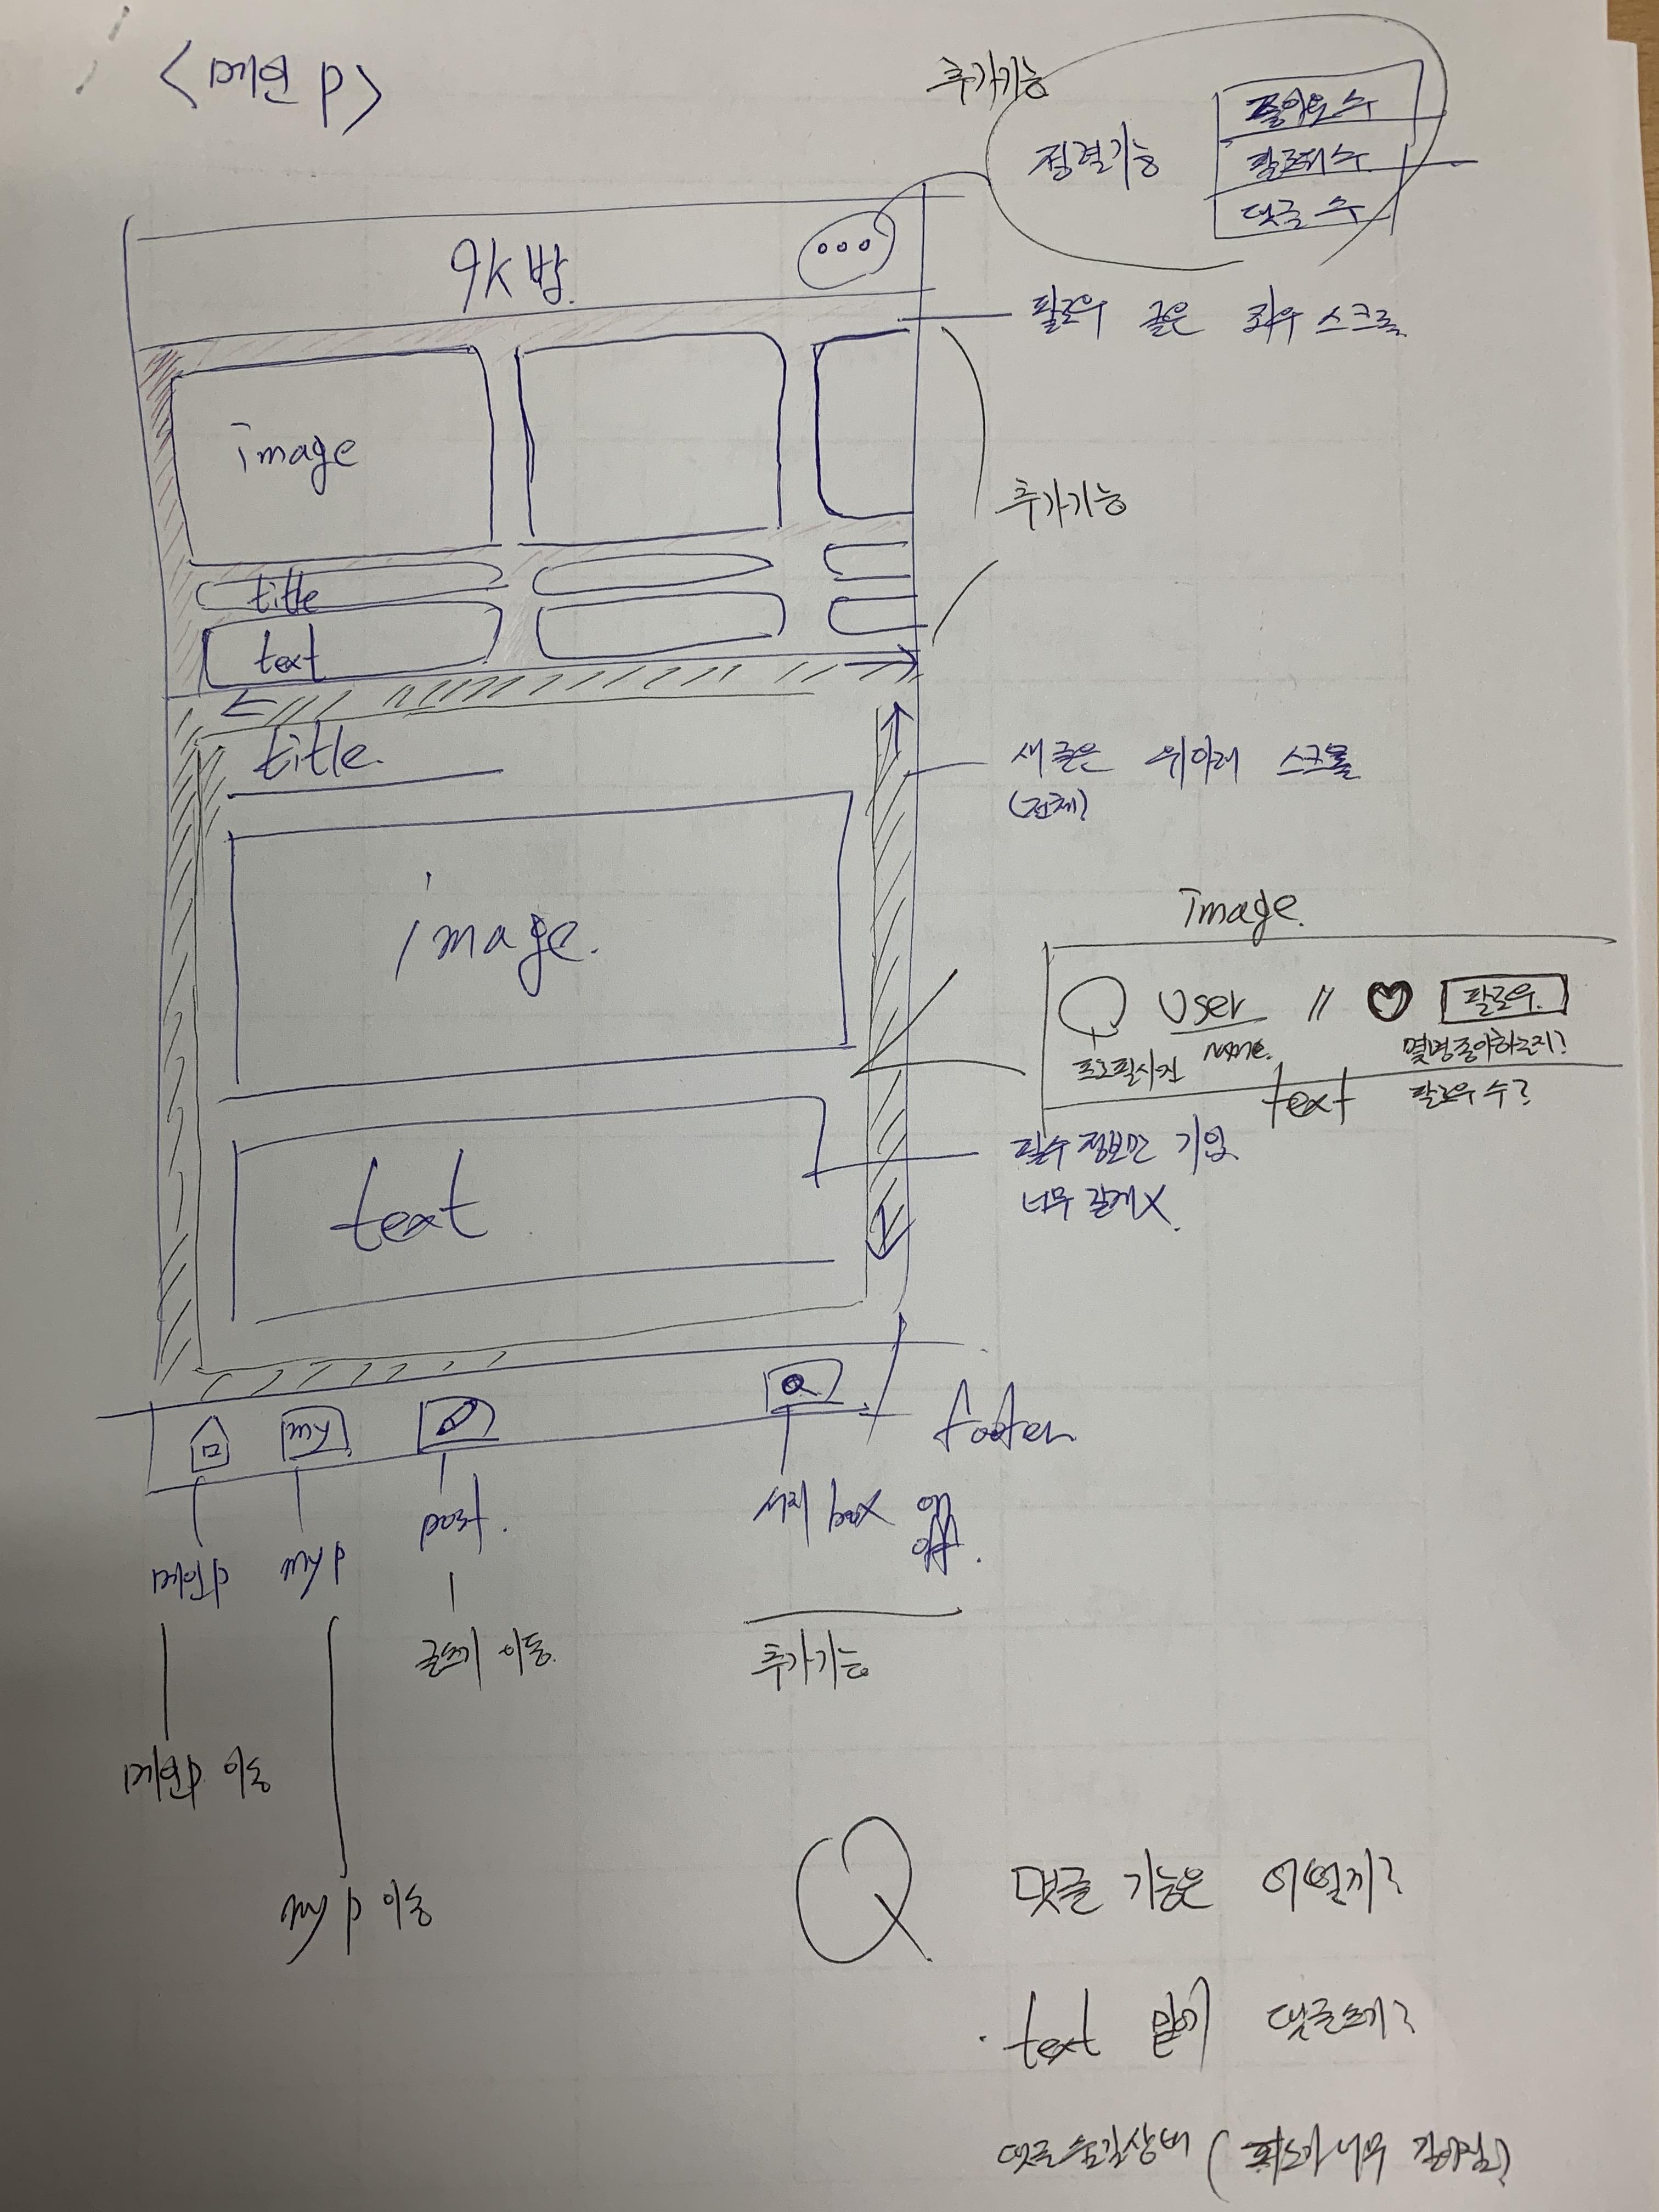 <메인 P>
추가기능
정렬기능
팔로우 수
팔로워 수
댓글 수
9K밥.
팔로우 글은 좌우 스크롤
image
추가기능
title
text
title.
새글은 위아래 스크롤
(전체)
image.
image.
User // 팔로우.
name.
프로필사진
몇명좋아하는지?
text
팔로우 수?
필수 정보만 기입
너무 길게X.
text
my
footer
메인P
my P
post.
서치 box on
off.
글쓰기 이동.
추가기능
메인P 이동
my P 이동
Q 댓글 기능은 어떨지?
· text 밑에 댓글쓰기?